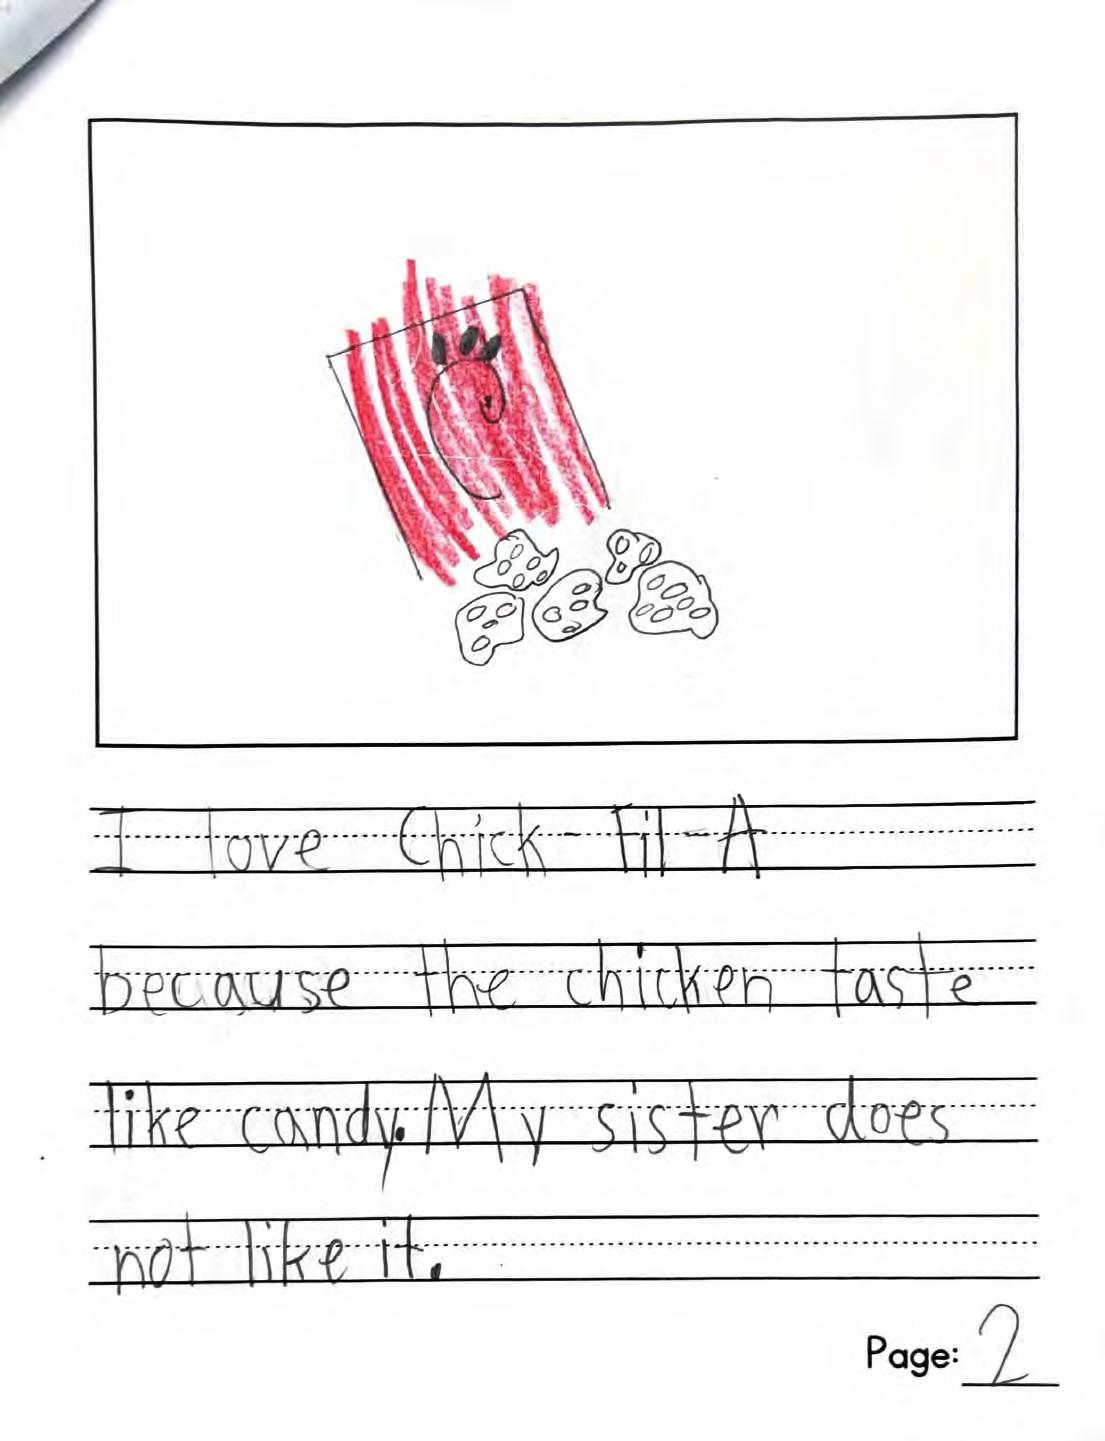 I love Chick-Fil-A
because the chicken taste
like candy. My sister does
not like it.
Page: 2